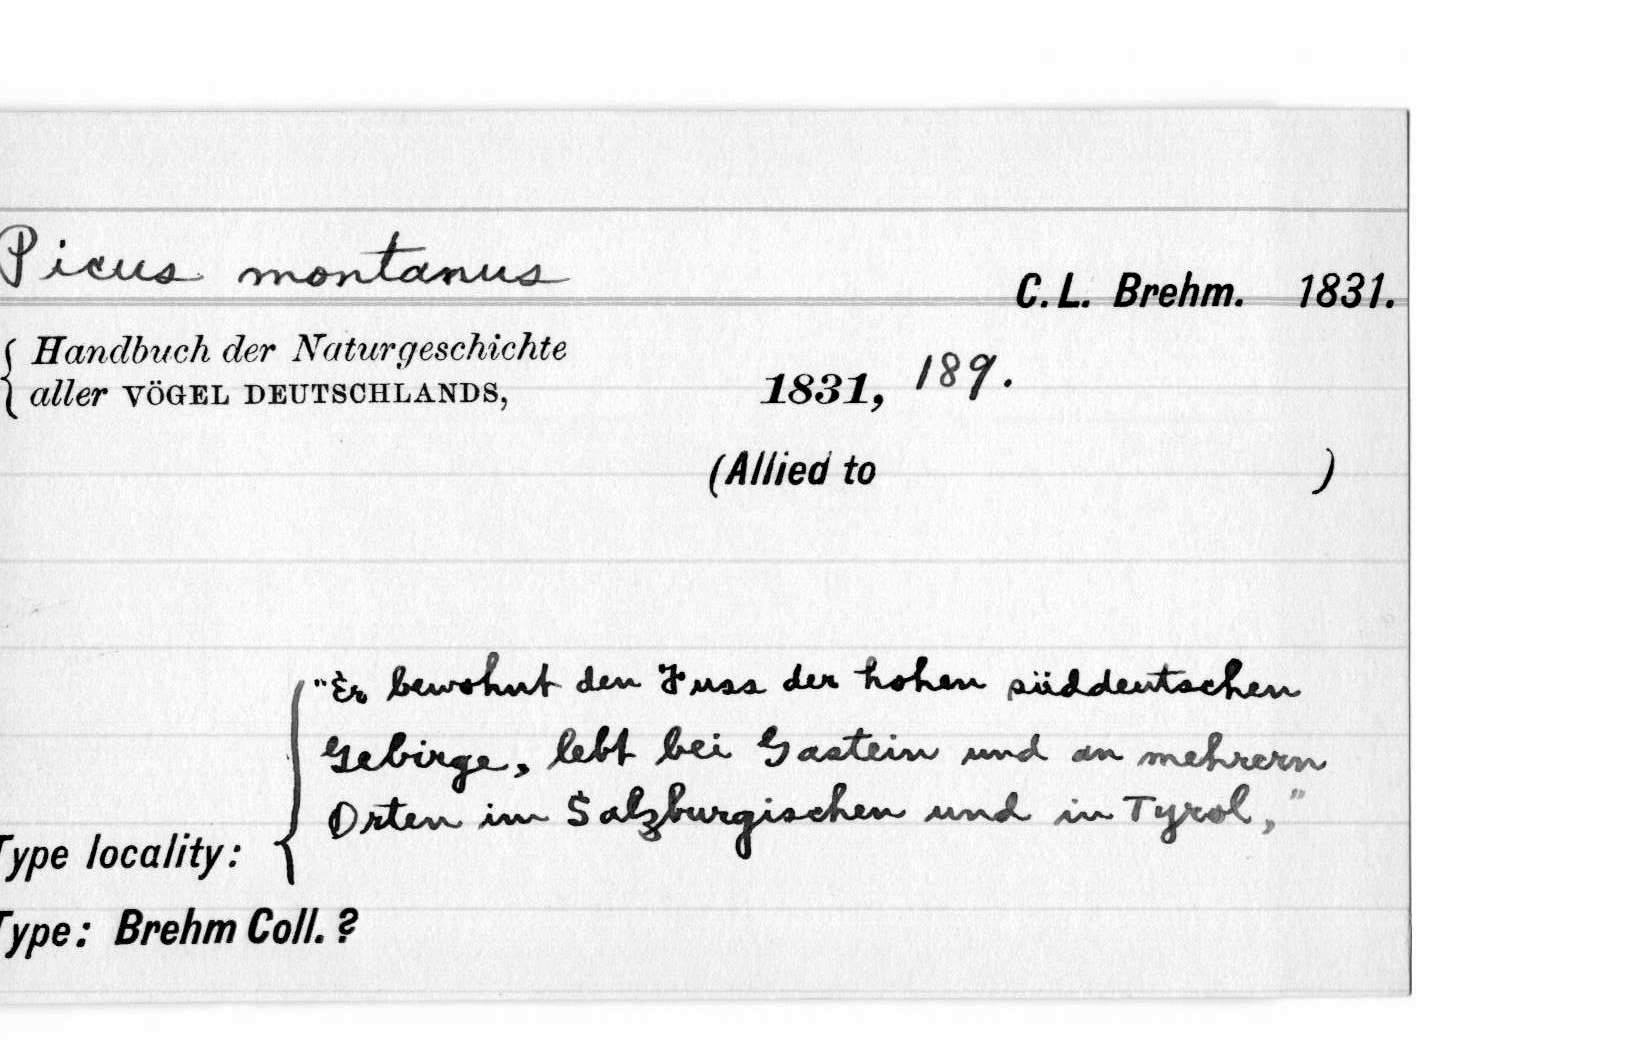 Picus montanus
C. L. Brehm. 1831.
Handbuch der Naturgeschichte
aller VÖGEL DEUTSCHLANDS, 1831, 189.
(Allied to )
"Er bewohnt den Fuss der hohen süddeutschen
Gebirge, lebt bei Gastein und an mehrern
Orten im Salzburgischen und in Tyrol,"
Type locality:
Type: Brehm Coll. ?